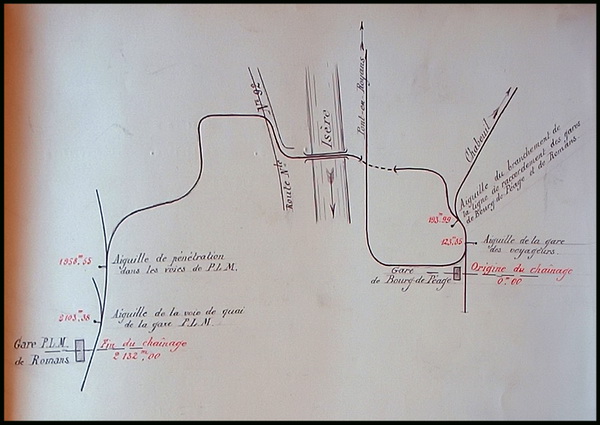 Nº 92
Route Nle
Isère
Pont-en-Royans
Chabeuil
Aiguille du branchement de
la ligne de raccordement des gares
de Bourg de Péage et de Romans.
193m99
125m35
Aiguille de la gare
des voyageurs.
Gare
de Bourg-de-Péage
Origine du chaînage
0m00
1958m55
Aiguille de pénétration
dans les voies de P.L.M.
2103m38
Aiguille de la voie de quai
de la gare P.L.M.
Gare P.L.M.
de Romans
Fin du chaînage
2132m00